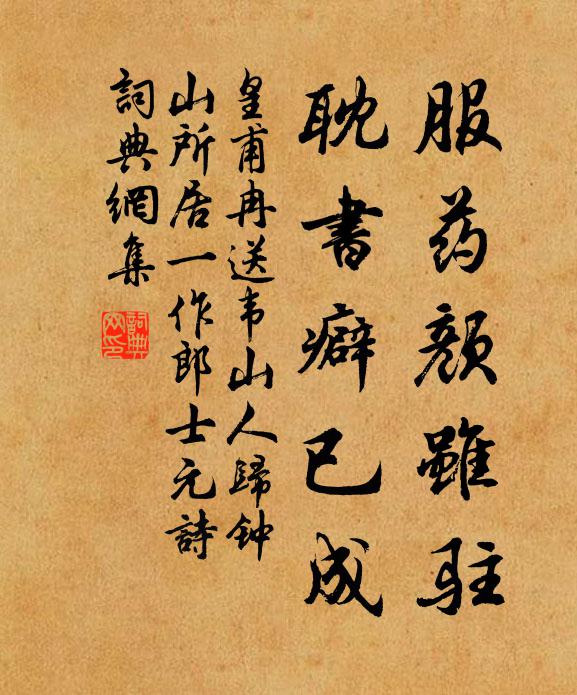 服药颜雖驻
耽書癖已成
皇甫冉送韦山人歸钟
山所居一作郎士元詩
詞典網集
詞典網印